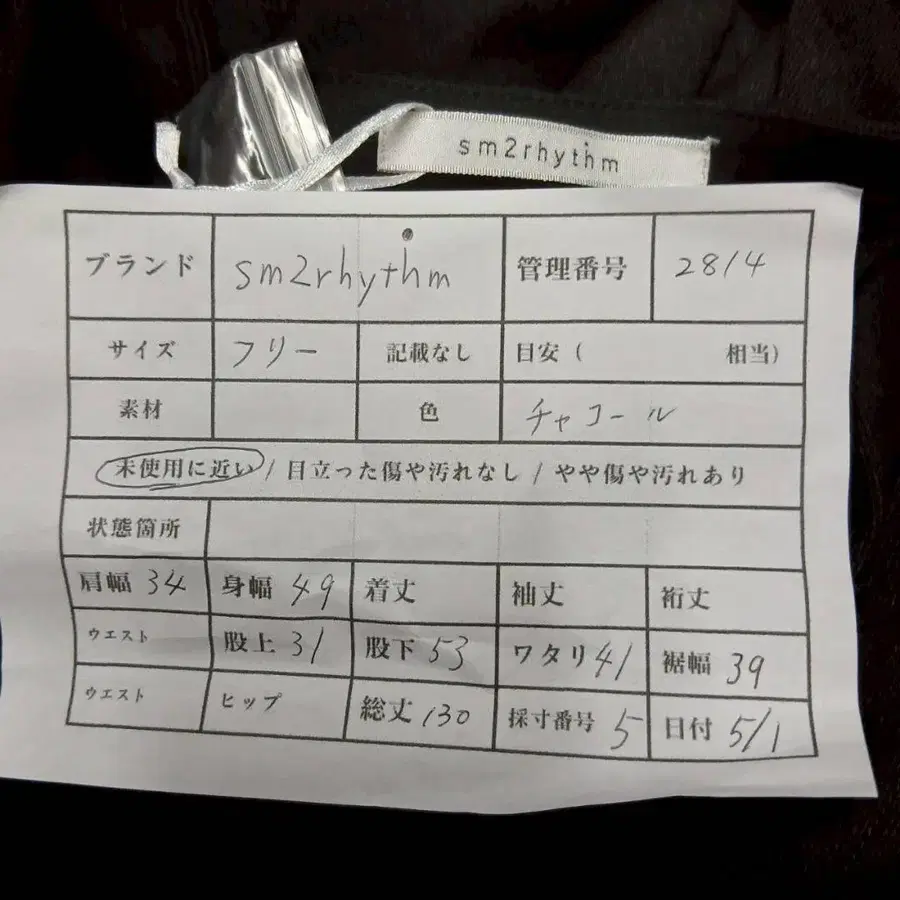 sm2rhythm
ブランド sm2rhythm 管理番号 2814
サイズ フリー 記載なし 目安( 相当)
素材 色 チャコール
未使用に近い / 目立った傷や汚れなし / やや傷や汚れあり
状態箇所
肩幅 34 身幅 49 着丈 袖丈 裄丈
ウエスト 股上 31 股下 53 ワタリ 41 裾幅 39
ウエスト ヒップ 総丈 130 採寸番号 5 日付 5/1